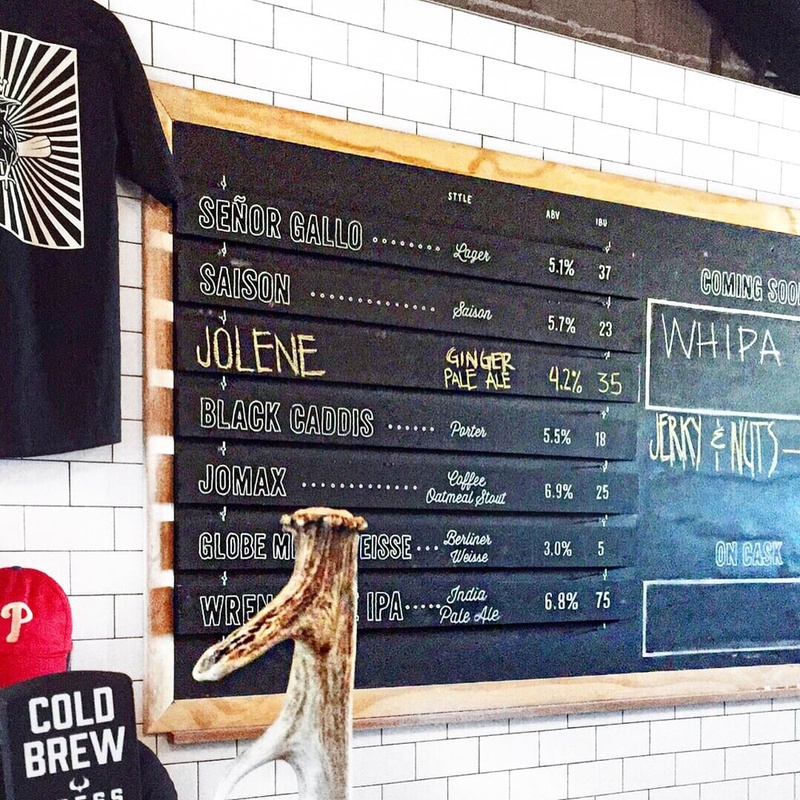 STYLE ABV IBU
SEÑOR GALLO ........ Lager 5.1% 37
SAISON ............ Saison 5.7% 23
JOLENE GINGER PALE ALE 4.2% 35
BLACK CADDIS ...... Porter 5.5% 18
JOMAX ............. Coffee Oatmeal Stout 6.9% 25
GLOBE EISSE ... Berliner Weisse 3.0% 5
WREN IPA ..... India Pale Ale 6.8% 75
COMING SOO
WHIPA
JERKY & NUTS —
ON CASK
P
COLD
BREW